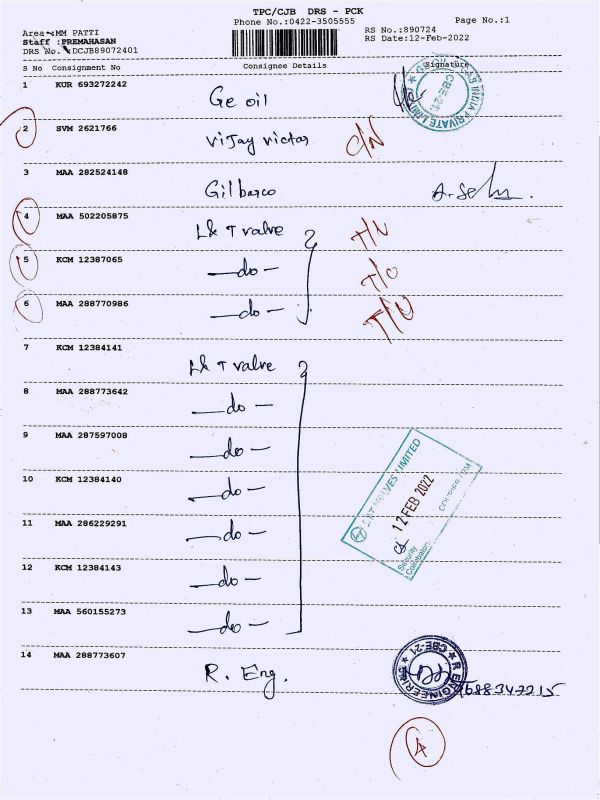 TPC/CJB DRS - PCK
Phone No.:0422-3505555
Page No.:1
Area :MM PATTI
RS No.:890724
Staff :PREMAHASAN
RS Date:12-Feb-2022
DRS No. :DCJB89072401
S No Consignment No Consignee Details Signature
1 KUR 693272242 Ge oil
2 SVM 2621766 Vijay victor C/N
3 MAA 282524148 Gilbarco
4 MAA 502205875 L& T valve T/N
5 KCM 12387065 —do— T/O
6 MAA 288770986 —do— T/O
7 KCM 12384141 L& T valve
8 MAA 288773642 —do—
9 MAA 287597008 —do—
10 KCM 12384140 —do—
L&T VALVES LIMITED
12 FEB 2022
Security
Coimbatore
11 MAA 286229291 —do—
12 KCM 12384143 —do—
13 MAA 560155273 —do—
14 MAA 288773607 R. Eng.
R ENGINEERING
CBE-21
4